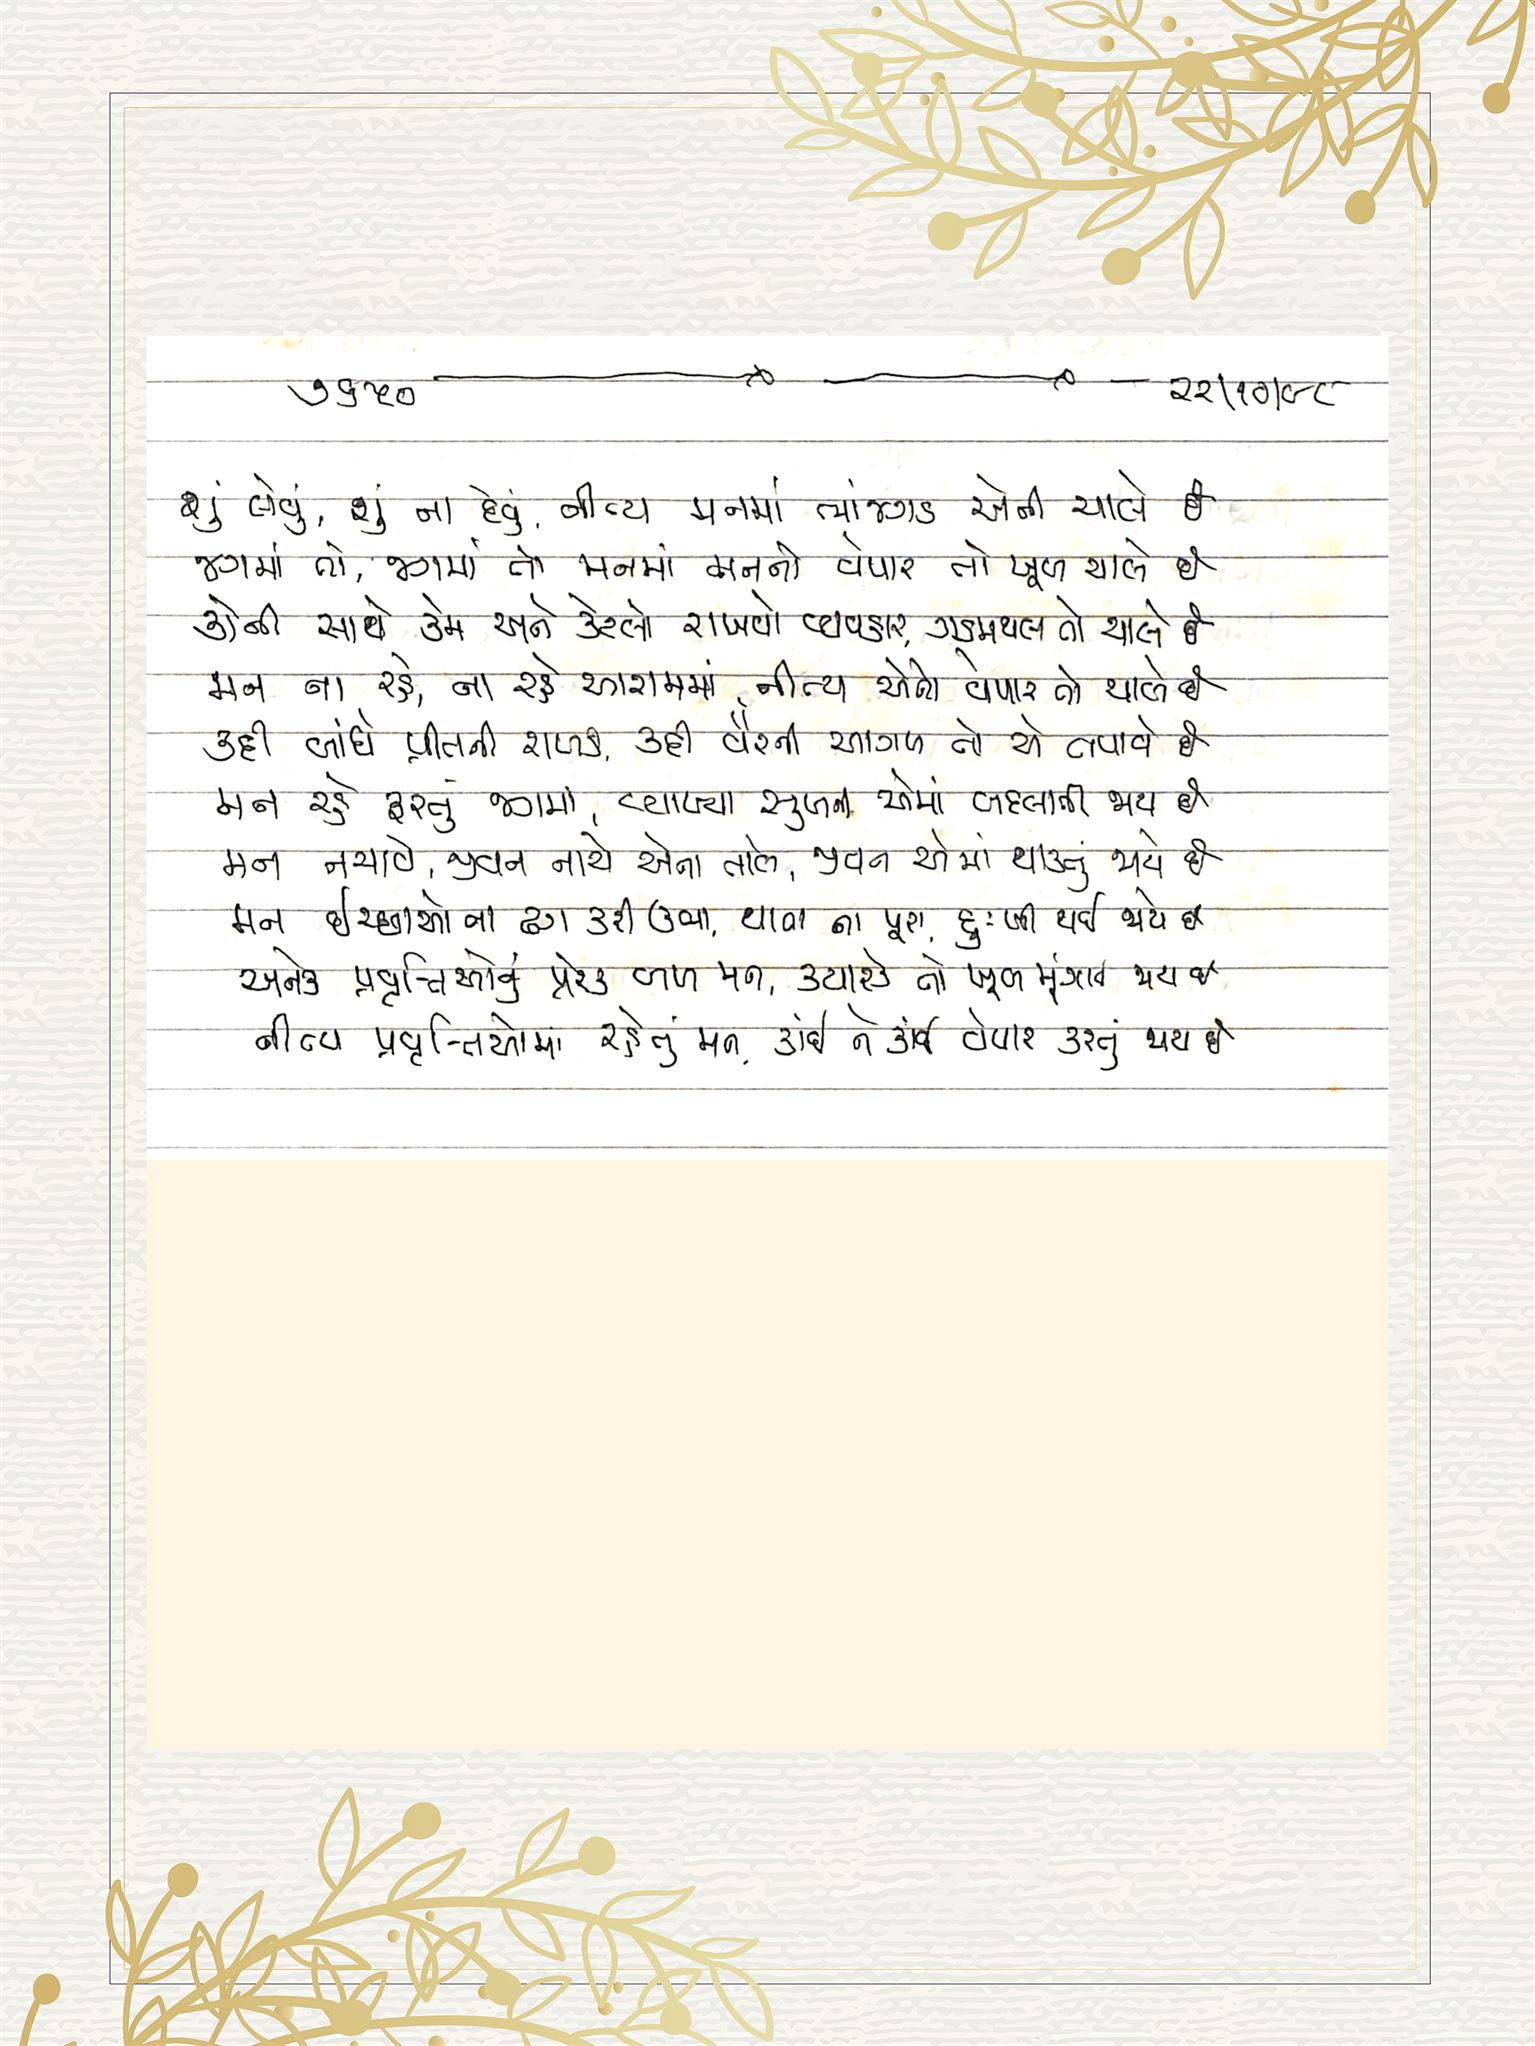 ૭૬૫૦ ૨૨/૧૦/૯૮
શું લેવું, શું ના દેવું, નીત્ય મનમાં ભાંજગડ એની ચાલે છે
જગમાં તો, જગમાં તો મનમાં મનનો વેપાર તો ખૂબ ચાલે છે
કોની સાથે કેમ અને કેટલો રાખવો વ્યવહાર, ગડમથલ તો ચાલે છે
મન ના રહે, ના રહે આરામમાં, નીત્ય એનો વેપાર તો ચાલે છે
કદી બાંધે પ્રીતની ગાંઠ, કદી વૈરની આગમાં તો એ તપાવે છે
મન રહે ફરતું જગમાં, વ્યાખ્યા સુખની એમાં બદલાતી જાય છે
મન નચાવે, જીવન નાચે એના તાલે, જીવન એમાં થાકતું જાયે છે
મન ઈચ્છાઓના ઢગ કરી ઊભા, થાતા ના પૂરા, દુઃખી થઈ જાયે છે
અનેક પ્રવૃત્તિઓનું પ્રેરક બળ મન, ક્યારેક તો ખૂબ મૂંઝાઈ જાય છે
નીત્ય પ્રવૃત્તિઓમાં રહેતું મન, કાંઈ ને કાંઈ વેપાર કરતું જાય છે